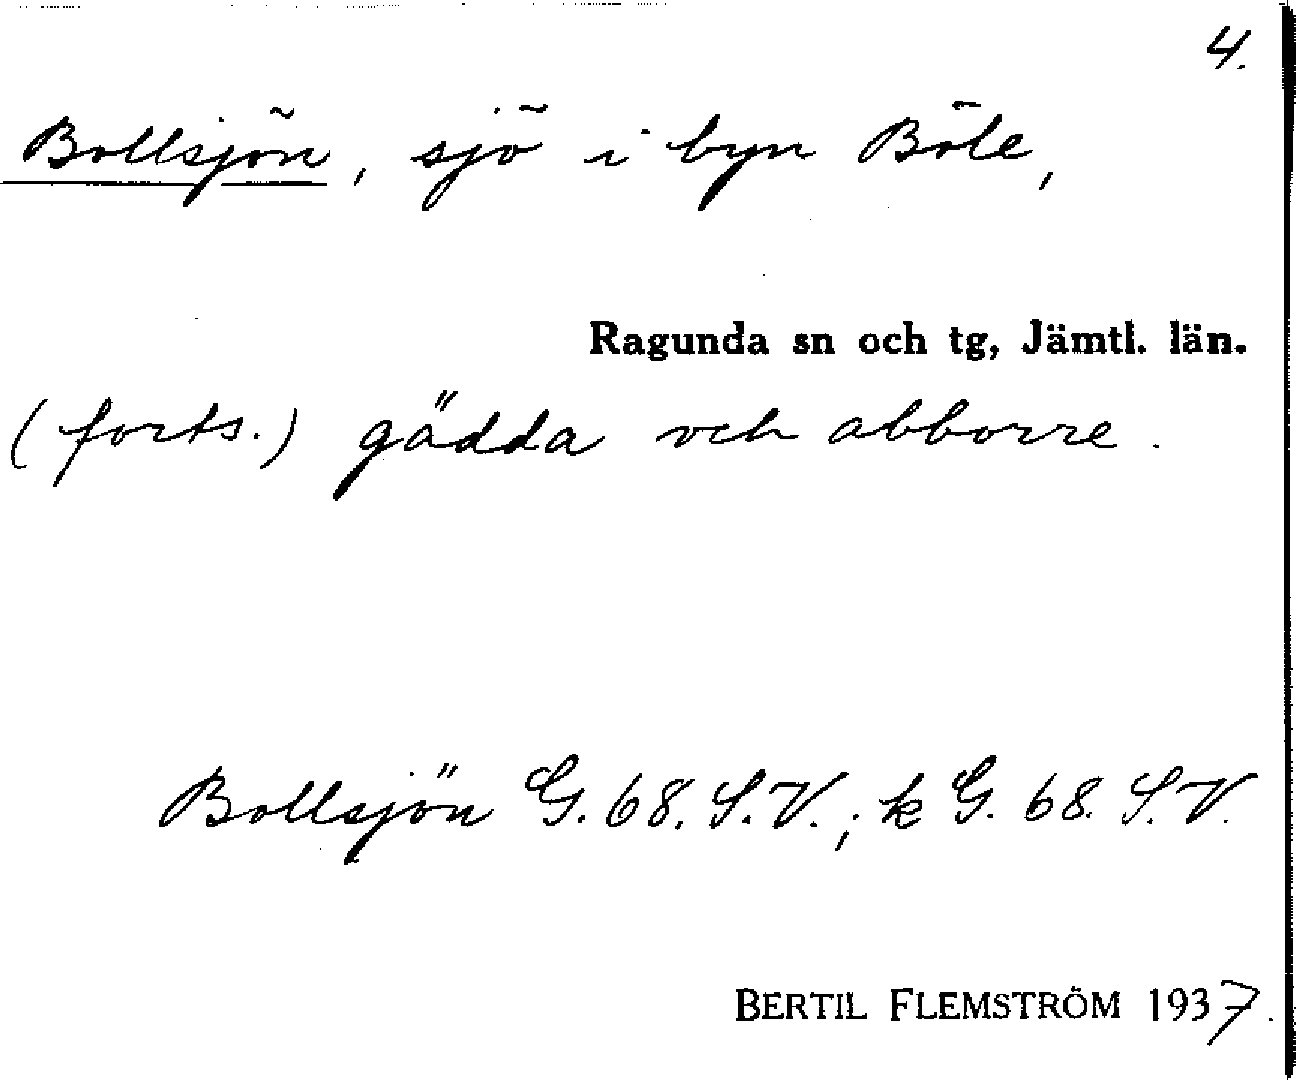 4.
Bollsjön, sjö i byn Böle,
Ragunda sn och tg, Jämtl. län.
(forts.) gädda och abborre.
Bollsjön G. 68. S.V.; k G. 68. S.V.
BERTIL FLEMSTRÖM 1937.